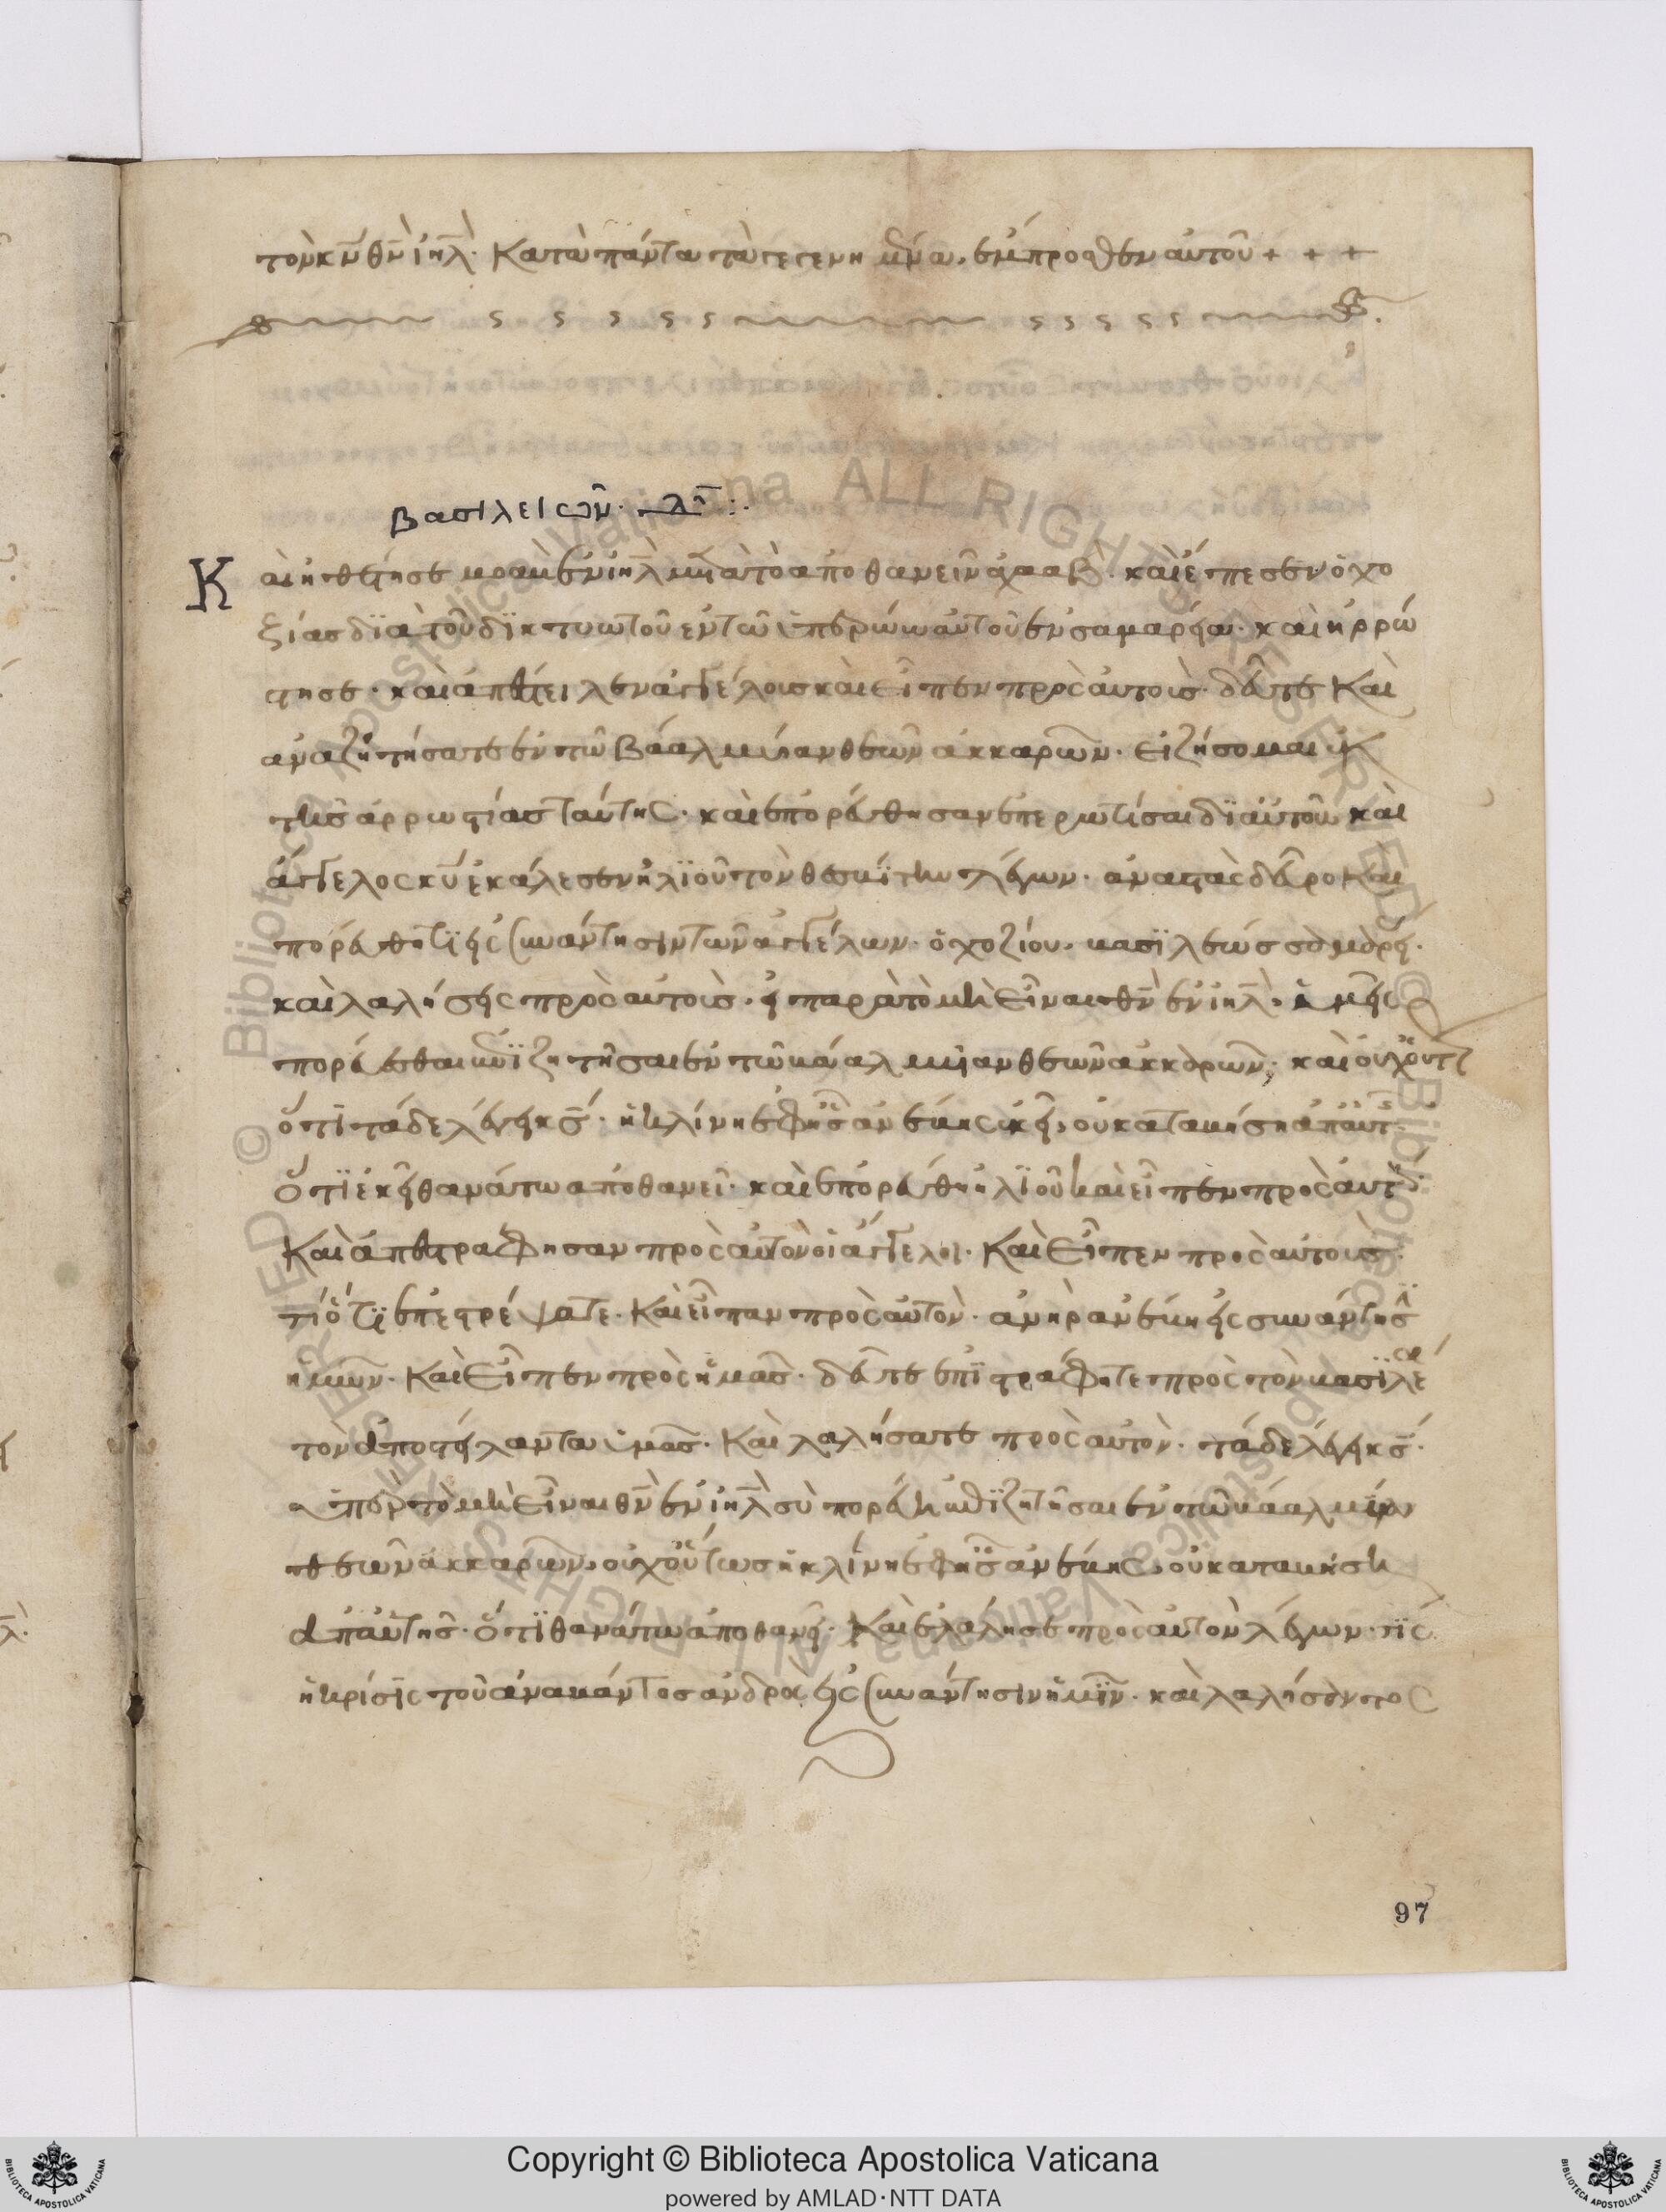 τὸν κ̅ν̅ θ̅ν̅ ι̅η̅λ̅. Κατὰ πάντα τὰ γεγενημένα ἔμπροσθεν αὐτοῦ + + +
βασιλειῶν. δ̅ :.
Καὶ ἠθέτησε μωαὺ ἐν ι̅η̅λ̅ μετὰ τὸ αποθανεῖν ἀχαάβ. καὶ ἔπεσεν ὀχο
ξίας δϊὰ τοῦ δϊκτυωτοῦ ἐν τῶ ὑπερώω αὐτοῦ ἐν σαμαρεία. καὶ ἠρρώ
στησε. καὶ ἀπέστειλεν ἀγγέλους καὶ εἶπεν πρὸς αὐτούς. δεῦτε Καὶ
ἀναζητήσατε ἐν τῶ βάαλ μυΐαν θεῶν ἀκκαρῶν. εἰ ζήσομαι ἐκ
τῆς ἀρρωστίας ταύτης. καὶ ἐπορεύθησαν ἐπερωτίσαι δϊ αὐτοῦ καὶ
ἄγγελος κ̅υ̅ ἐκάλεσεν ἠλϊοῦ τὸν θεσβΐτην λέγων. ἀναστὰς δεῦρο Και
πορεύθητϊ εἰς συνάντησιν τῶν ἀγγέλων. ὀχοζίου. βασϊλέως σαμαρεί.
καὶ λαλήσεις πρὸς αὐτούς. εἰ παρὰ τὸ μὴ εἶναι θ̅ν̅ ἐν ι̅η̅λ̅. ὑμεῖς
πορεύεσθαι ἐκζητῆσαι ἐν τῶ βάαλ μυΐαν θεῶν ἀκκαρῶν, καὶ οὐχ οὕτ
ὅτϊ τάδε λέγει κ̅ς̅. ἡ κλίνη ἐφ ἧς ἀνέβης ἐκεῖ, οὐ καταβήση ἀπ αὐτῆς
ὅτϊ ἐκεῖ θανάτω ἀποθανεῖ. καὶ ἐπορεύθη ἠλϊοῦ καὶ εἶπεν πρὸς αὐτούς.
Καὶ ἀπεστράφησαν πρὸς αὐτὸν οἱ ἄγγελοι. Καὶ εἶπεν πρὸς αὐτούς.
τί ὅτϊ ἐπεστρέψατε. Καὶ εἶπαν πρὸς αὐτὸν. ἀνὴρ ἀνέβη εἰς συνάντησϊν
ἡμῶν. Καὶ εἶπεν πρὸς ἡμᾶς. δεῦτε ἐπϊστράφητε πρὸς τὸν βασϊλέα
τὸν ἀποστείλαντα ὑμᾶς. Καὶ λαλήσατε πρὸς αὐτὸν. τάδε λέγει κ̅ς̅.
εἰ παρὰ τὸ μὴ εἶναι θ̅ν̅ ἐν ι̅η̅λ̅ σὺ πορεύη ἐκζητῆσαι ἐν τῶ βάαλ μυΐαν
θεῶν ἀκκαρῶν, οὐχ οὕτως ἡ κλίνη ἐφ ἧς ἀνέβης, οὐ καταβήση
ἀπ αὐτῆς. ὅτϊ θανάτω ἀποθανεῖ. Καὶ ἐλάλησε πρὸς αὐτὸν λέγων. τΐς
ἡ κρίσϊς τοῦ ἀναβάντος ἀνδρὸς εἰς συνάντησιν ἡμῖν. καὶ λαλήσαντος
97
Copyright © Biblioteca Apostolica Vaticana
powered by AMLAD·NTT DATA